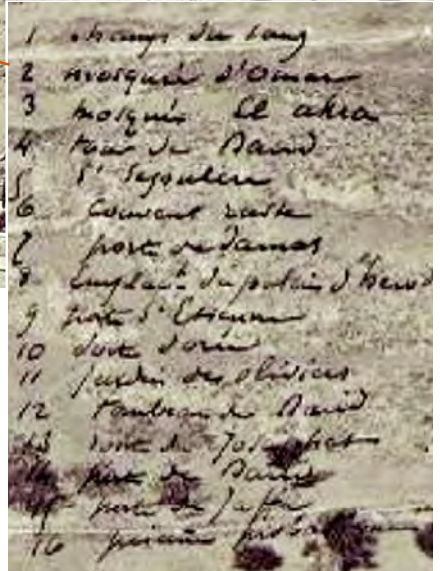 1 champ du sang
2 mosquée d'Omar
3 mosquée El aksa
4 tour de David
5 St Sepulcre
6 couvent russe
7 porte de damas
8 emplact du palais d'Herod
9 porte St Etienne
10 porte dorée
11 jardin des oliviers
12 tombeau de David
13 de Josaphat
14 porte de David
15 porte de Jaffa
16 piscine